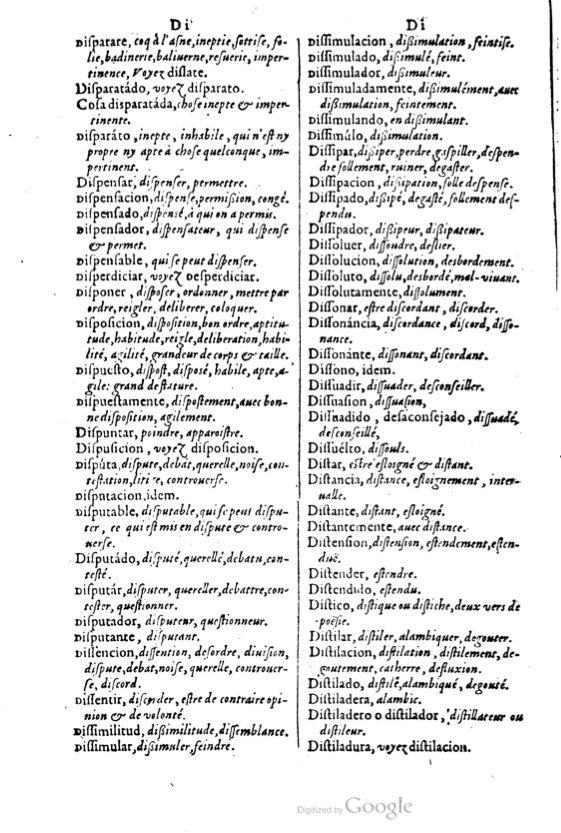 Di
Disparate, coq à l'asne, ineptie, sottise, fo-
lie, badinerie, baliuerne, resuerie, imper-
tinence, Voyez dislate.
Disparatádo, voyez disparato.
Cosa disparatáda, chose inepte & imper-
tinente.
Disparáto, inepte, inhabile, qui n'est ny
propre ny apte à chose quelconque, im-
pertinent.
Dispensar, dispenser, permettre.
Dispensacion, dispense, permission, congé.
Dispensado, dispensé, à qui on a permis.
Dispensador, dispensateur, qui dispense
& permet.
Dispensable, qui se peut dispenser.
Disperdiciar, voyez Desperdiciar.
Disponer, disposer, ordonner, mettre par
ordre, reigler, deliberer, coloquer.
Disposicion, disposition, bon ordre, aptitu-
tude, habitude, reigle, deliberation, habi-
lité, agilité, grandeur de corps & taille.
Dispuesto, dispost, disposé, habile, apte, a-
gile: grand de stature.
Dispuestamente, dispostement, auec bon-
ne disposition, agilement.
Dispuntar, poindre, apparoistre.
Dispusicion, voyez disposicion.
Dispúta, dispute, debat, querelle, noise, con-
testation, litige, controuerse.
Disputacion, idem.
Disputable, disputable, qui se peut dispu-
ter, ce qui est mis en dispute & contro-
uerse.
Disputádo, disputé, querellé, debatu, con-
testé.
Disputár, disputer, quereller, debattre, con-
tester, questionner.
Disputador, disputeur, questionneur.
Disputante, disputant.
Dissencion, dissention, desordre, diuision,
dispute, debat, noise, querelle, controuer-
se, discord.
Dissentir, discorder, estre de contraire opi-
nion & de volonté.
Dissimilitud, dissimilitude, dissemblance.
Dissimular, dissimuler, feindre.
Di
Dissimulacion, dissimulation, feintise.
Dissimulado, dissimulé, feint.
Dissimulador, dissimuleur.
Dissimuladamente, dissimulément, auec
dissimulation, feintement.
Dissimulando, en dissimulant.
Dissimúlo, dissimulation.
Dissipar, dissiper, perdre, gaspiller, despen-
dre follement, ruiner, degaster.
Dissipacion, dissipation, folle despense.
Dissipado, dissipé, degasté, follement des-
pendu.
Dissipador, dissipeur, dissipateur.
Dissoluer, dissoudre, deslier.
Dissolucion, dissolution, desbordement.
Dissoluto, dissolu, desbordé, mal-viuant.
Dissolutamente, dissolument.
Dissonar, estre discordant, discorder.
Dissonáncia, discordance, discord, disso-
nance.
Dissonánte, dissonant, discordant.
Dissono, idem.
Dissuadir, dissuader, desconseiller.
Dissuasion, dissuasion,
Dissuadido, desaconsejado, dissuadé,
desconseillé,
Dissuélto, dissouls.
Distar, estre esloigné & distant.
Distancia, distance, esloignement, inter-
ualle.
Distante, distant, esloigné.
Distantemente, auec distance.
Distension, distension, estendement, esten-
due.
Distender, estendre.
Distendido, estendu.
Distico, distique ou distiche, deux vers de
poësie.
Distilar, distiler, alambiquer, degouter.
Distilacion, distilation, distilement, de-
goutement, catherre, defluxion.
Distilado, distilé, alambiqué, degouté.
Distiladera, alambic.
Distiladero o distilador, distillateur ou
distileur.
Distiladura, voyez distilacion.
Digitized by Google